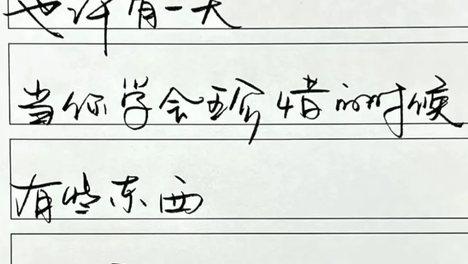 也许有一天
当你学会珍惜的时候
有些东西